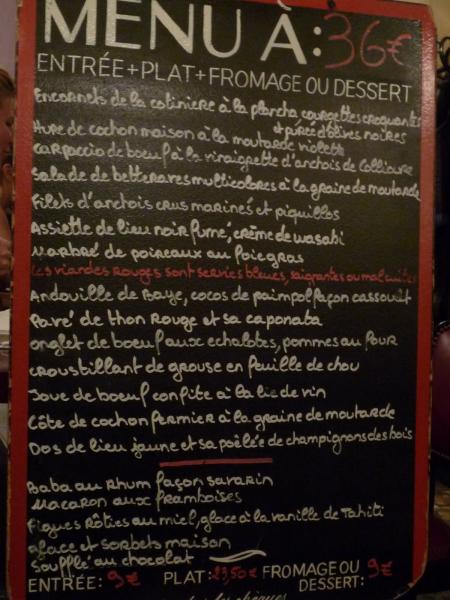 MENU À: 36€
ENTRÉE+PLAT+FROMAGE OU DESSERT
Encornets de la cotinière à la plancha courgettes croquantes
et purée d'olives noires
Hure de cochon maison à la moutarde violette
Carpaccio de boeuf à la vinaigrette d'anchois de Collioure
Salade de betteraves multicolores à la graine de moutarde
Filets d'anchois crus marinés et piquillos
Assiette de lieu noir fumé, crème de wasabi
Marbré de poireaux au foie gras
Les viandes rouges sont servies bleues, saignantes ou mal cuites
Andouille de Baye, cocos de paimpol façon cassoulet
Pavé de thon Rouge et sa caponata
Onglet de boeuf aux echalotes, pommes au four
Croustillant de grouse en feuille de chou
Joue de boeuf confite à la lie de vin
Côte de cochon fermier à la graine de moutarde
Dos de lieu jaune et sa poêlée de champignons des bois
Baba au Rhum façon savarin
Macaron aux framboises
Figues rôties au miel, glace à la vanille de Tahiti
glace et sorbets maison
Soufflé au chocolat
ENTRÉE: 9€ PLAT: 23,50€ FROMAGE OU DESSERT: 9€
les chèques